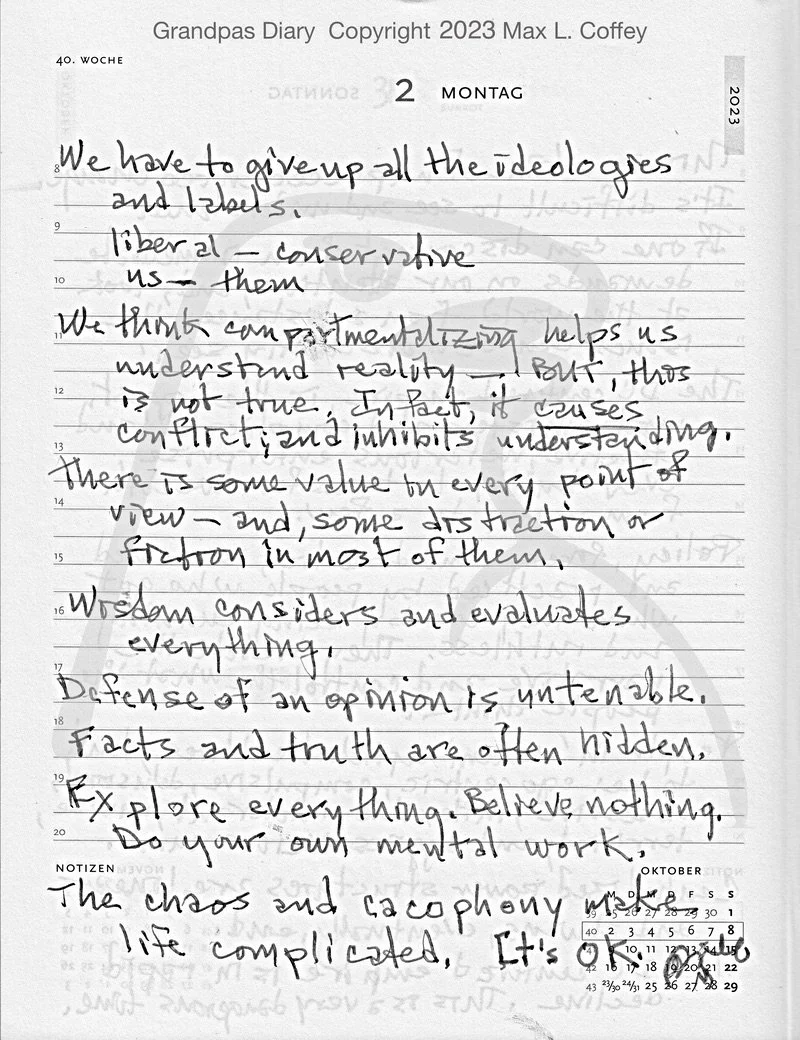 Grandpas Diary Copyright 2023 Max L. Coffey
40. WOCHE
2 MONTAG
2023
8 We have to give up all the ideologies
and labels.
9
liberal — conservative
10 us — them
11 We think compartmentalizing helps us
understand reality — BUT, this
12 is not true. In fact, it causes
conflict; and inhibits understanding.
13
There is some value in every point of
14 view — and, some distraction or
15 friction in most of them.
16 Wisdom considers and evaluates
everything.
17
Defense of an opinion is untenable.
18
Facts and truth are often hidden.
19
Explore everything. Believe nothing.
20 Do your own mental work.
NOTIZEN
OKTOBER
The chaos and cacophony make
life complicated. It's OK.
M D M D F S S
39 25 26 27 28 29 30 1
40 2 3 4 5 6 7 8
10 11 12 13 14 15
42 16 17 18 19 20 21 22
43 23/30 24/31 25 26 27 28 29